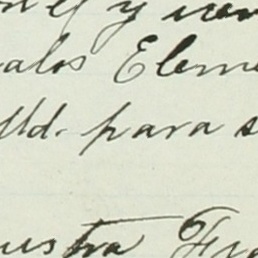 y
alos Eleme
Ud. para s
uestra Fra